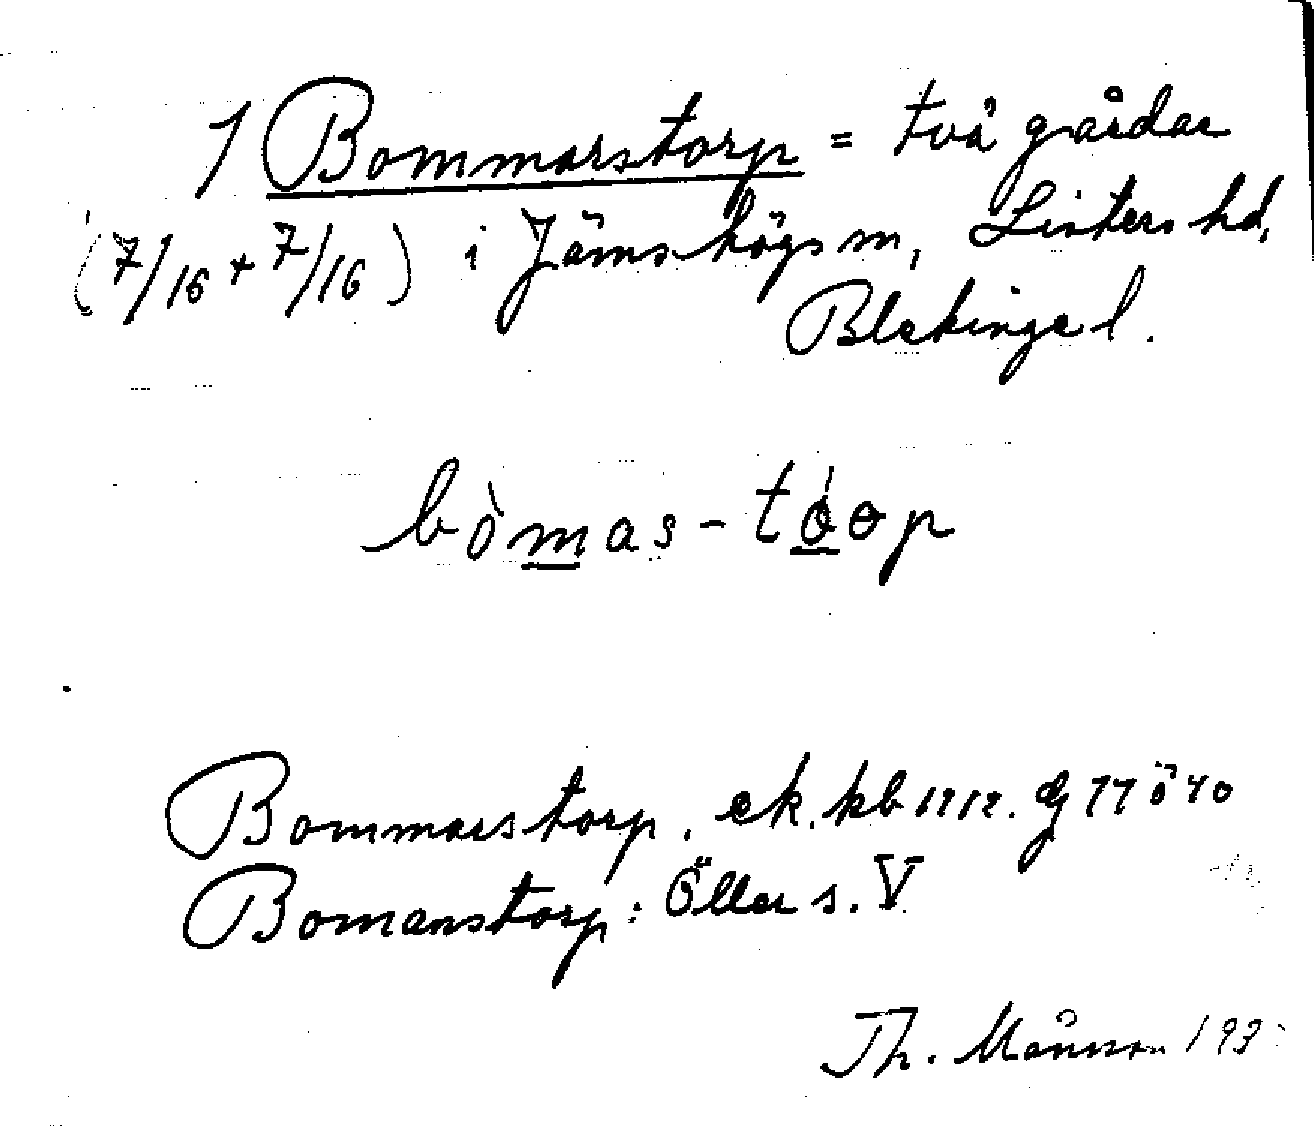 1 Bommarstorp = två gårdar
(7/16 + 7/16) i Jämshögs m, Listers hd,
Blekinge l.
bòmas-tóop
Bommarstorp. ek. kb 1912. G 77 ö 40
Bomanstorp: Öller s. V
Th. Månsson 193